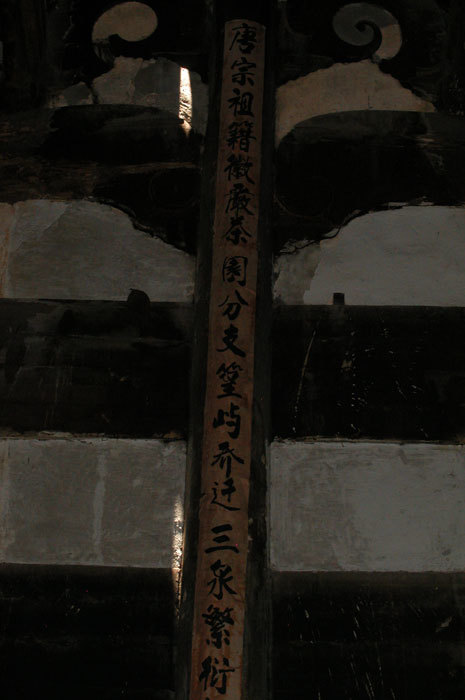 唐宗祖籍徽嚴茶園分支篁屿乔迁三泉繁衍